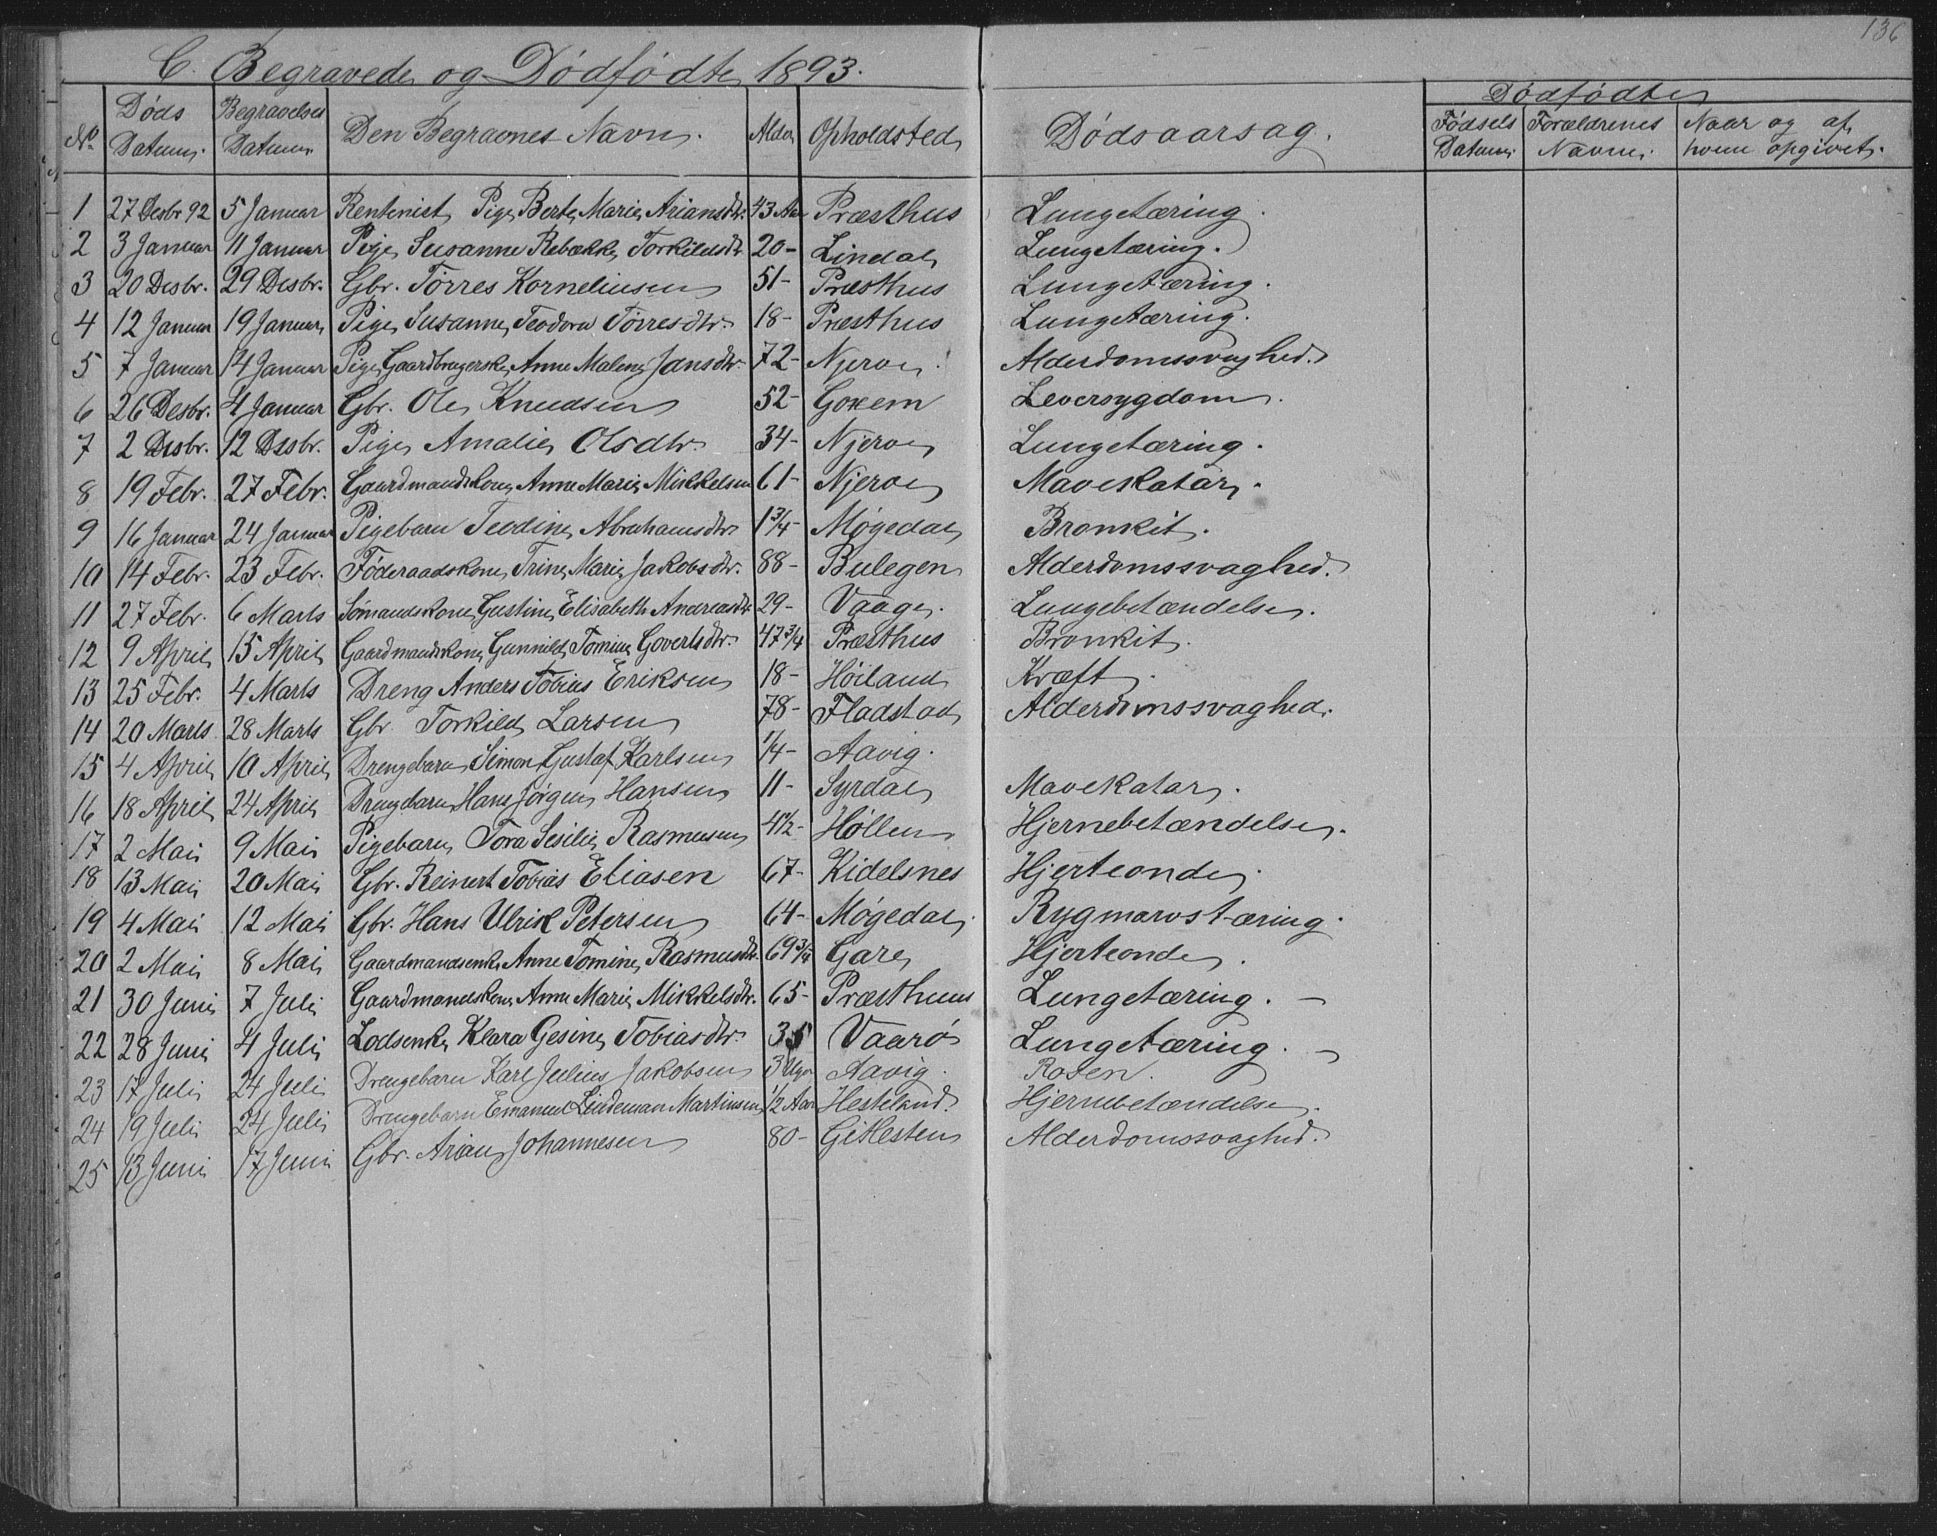 136
C. Begravede og Dødfødte 1893.
Dødfødte
No. Døds Datum. Begravelses Datum Den Begravnes Navn. Alder Opholdsted Dødsaarsag. Fødsels Datum. Forældrenes Navne. Naar og af hvem opgivet.
1 27 Desbr 92 5 Januar Rentenist Pige Berte Marie Ariansdtr. 43 Aar Præsthus Lungetæring.
2 3 Januar 11 Januar Pige Susanne Rebække Torkildsdtr 20- Lindal Lungetæring.
3 20 Desbr. 29 Desbr. Gbr. Tørres Korneliusen 51- Præsthus Lungetæring.
4 12 Januar 19 Januar Pige Susanne Teodora Tørresdtr. 18- Præsthus Lungetæring.
5 7 Januar 14 Januar Pige Gaardbrugerske Anne Malene Jansdtr. 72- Njerve. Alderdomssvaghed.
6 26 Desbr. 4 Januar Gbr. Ole Knudsen 52- Goxem Leversygdom.
7 2 Desbr. 12 Desbr. Pige Amalie Olsdtr. 34- Njerve Lungetæring.
8 19 Febr. 27 Febr. Gaardmandskone Anne Marie Mikkelsen 61- Njerve Mavekatar.
9 16 Januar 24 Januar Pigebarn Teodine Abrahamsdtr 1 3/4- Møgedal Bronkit.
10 14 Febr. 23 Febr. Føderaadskone Trine Marie Jakobsdtr. 88- Bulegen Alderdomssvaghed.
11 27 Febr. 6 Marts Sømandskone Gustine Elisabeth Andreasdtr. 29- Vaage. Lungebetændelse.
12 9 April 15 April Gaardmandskone Gunnild Tomine Govertsdtr. 47 3/4 Præsthus Bronkit.
13 25 Febr. 4 Marts Dreng Anders Tobias Eriksen 18- Høiland Kræft.
14 20 Marts 28 Marts Gbr Torkild Larsen 78- Fladstad Alderdomssvaghed.
15 4 April 10 April Drengebarn Simon Gustaf Karlsen 1/4- Aavig.
16 18 April 24 April Drengebarn Hans Jørgen Hansen 11- Syrdal Mavekatar.
17 2 Mai 9 Mai Pigebarn Tora Sesilie Rasmusen 4 1/2- Høllen Hjernebetændelse.
18 13 Mai 20 Mai Gbr. Reinert Tobias Eliasen 67- Kidelsnes Hjerteonde.
19 4 Mai 12 Mai Gbr. Hans Ulrik Petersen 64- Møgedal. Rygmarvstæring.
20 2 Mai 8 Mai Gaardmandsenke Anne Tomine Rasmusdtr. 69 3/4 Gare Hjerteonde.
21 30 Juni 7 Juli Gaardmandskone Anne Marie Mikkelsdtr. 65- Præsthuus Lungetæring. –
22 28 Juni 4 Juli Lodsenke Klara Gesine Tobiasdtr. 35 Vaarø Lungetæring. –
23 17 Juli 24 Juli Drengebarn Karl Julius Jakobsen 3 Uger Aavig. Rosen.
24 19 Juli 24 Juli Drengebarn Emanuel Lindeman Martinsen 1/2 Aar Hesteland. Hjernebetændelse.
25 13 Juni 17 Juni Gbr. Arian Johannesen 80- Gitlesten Alderdomssvaghed.